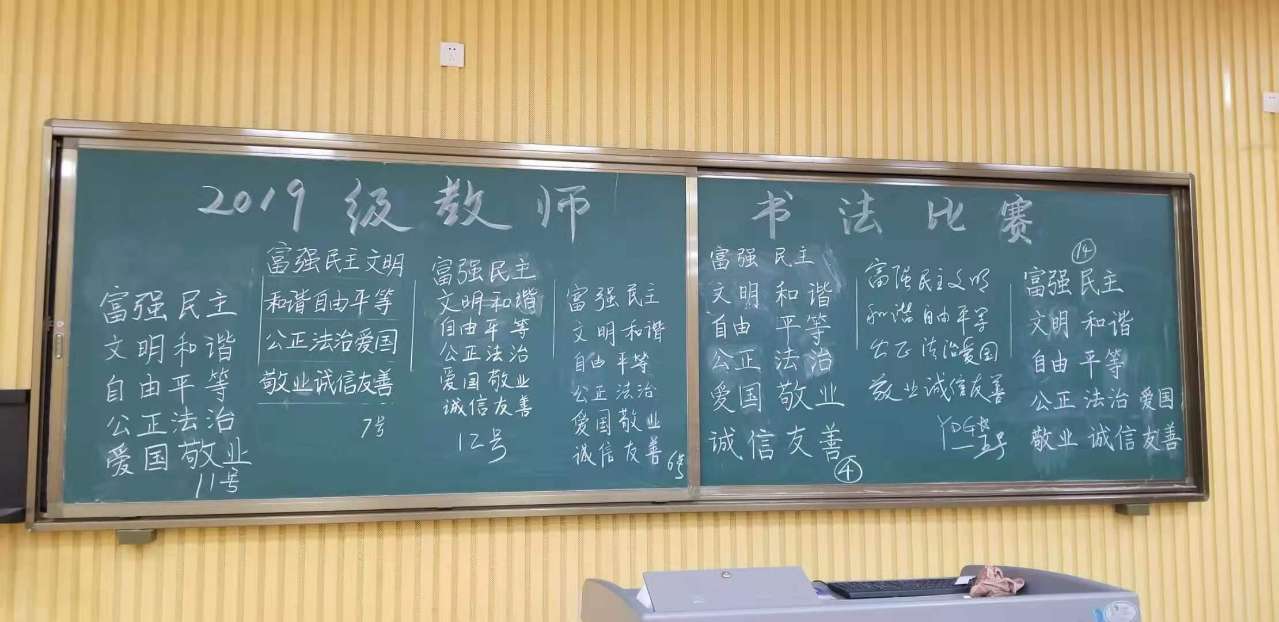 2019级教师 书法比赛
富强民主
文明和谐
自由平等
公正法治
爱国敬业
11号
富强民主文明
和谐自由平等
公正法治爱国
敬业诚信友善
7号
富强民主
文明和谐
自由平等
公正法治
爱国敬业
诚信友善
12号
富强民主
文明和谐
自由平等
公正法治
爱国敬业
诚信友善
6号
富强民主
文明和谐
自由平等
公正法治
爱国敬业
诚信友善
④
富强民主文明
和谐自由平等
公正法治爱国
敬业诚信友善
⑭
富强民主
文明和谐
自由平等
公正法治爱国
敬业诚信友善